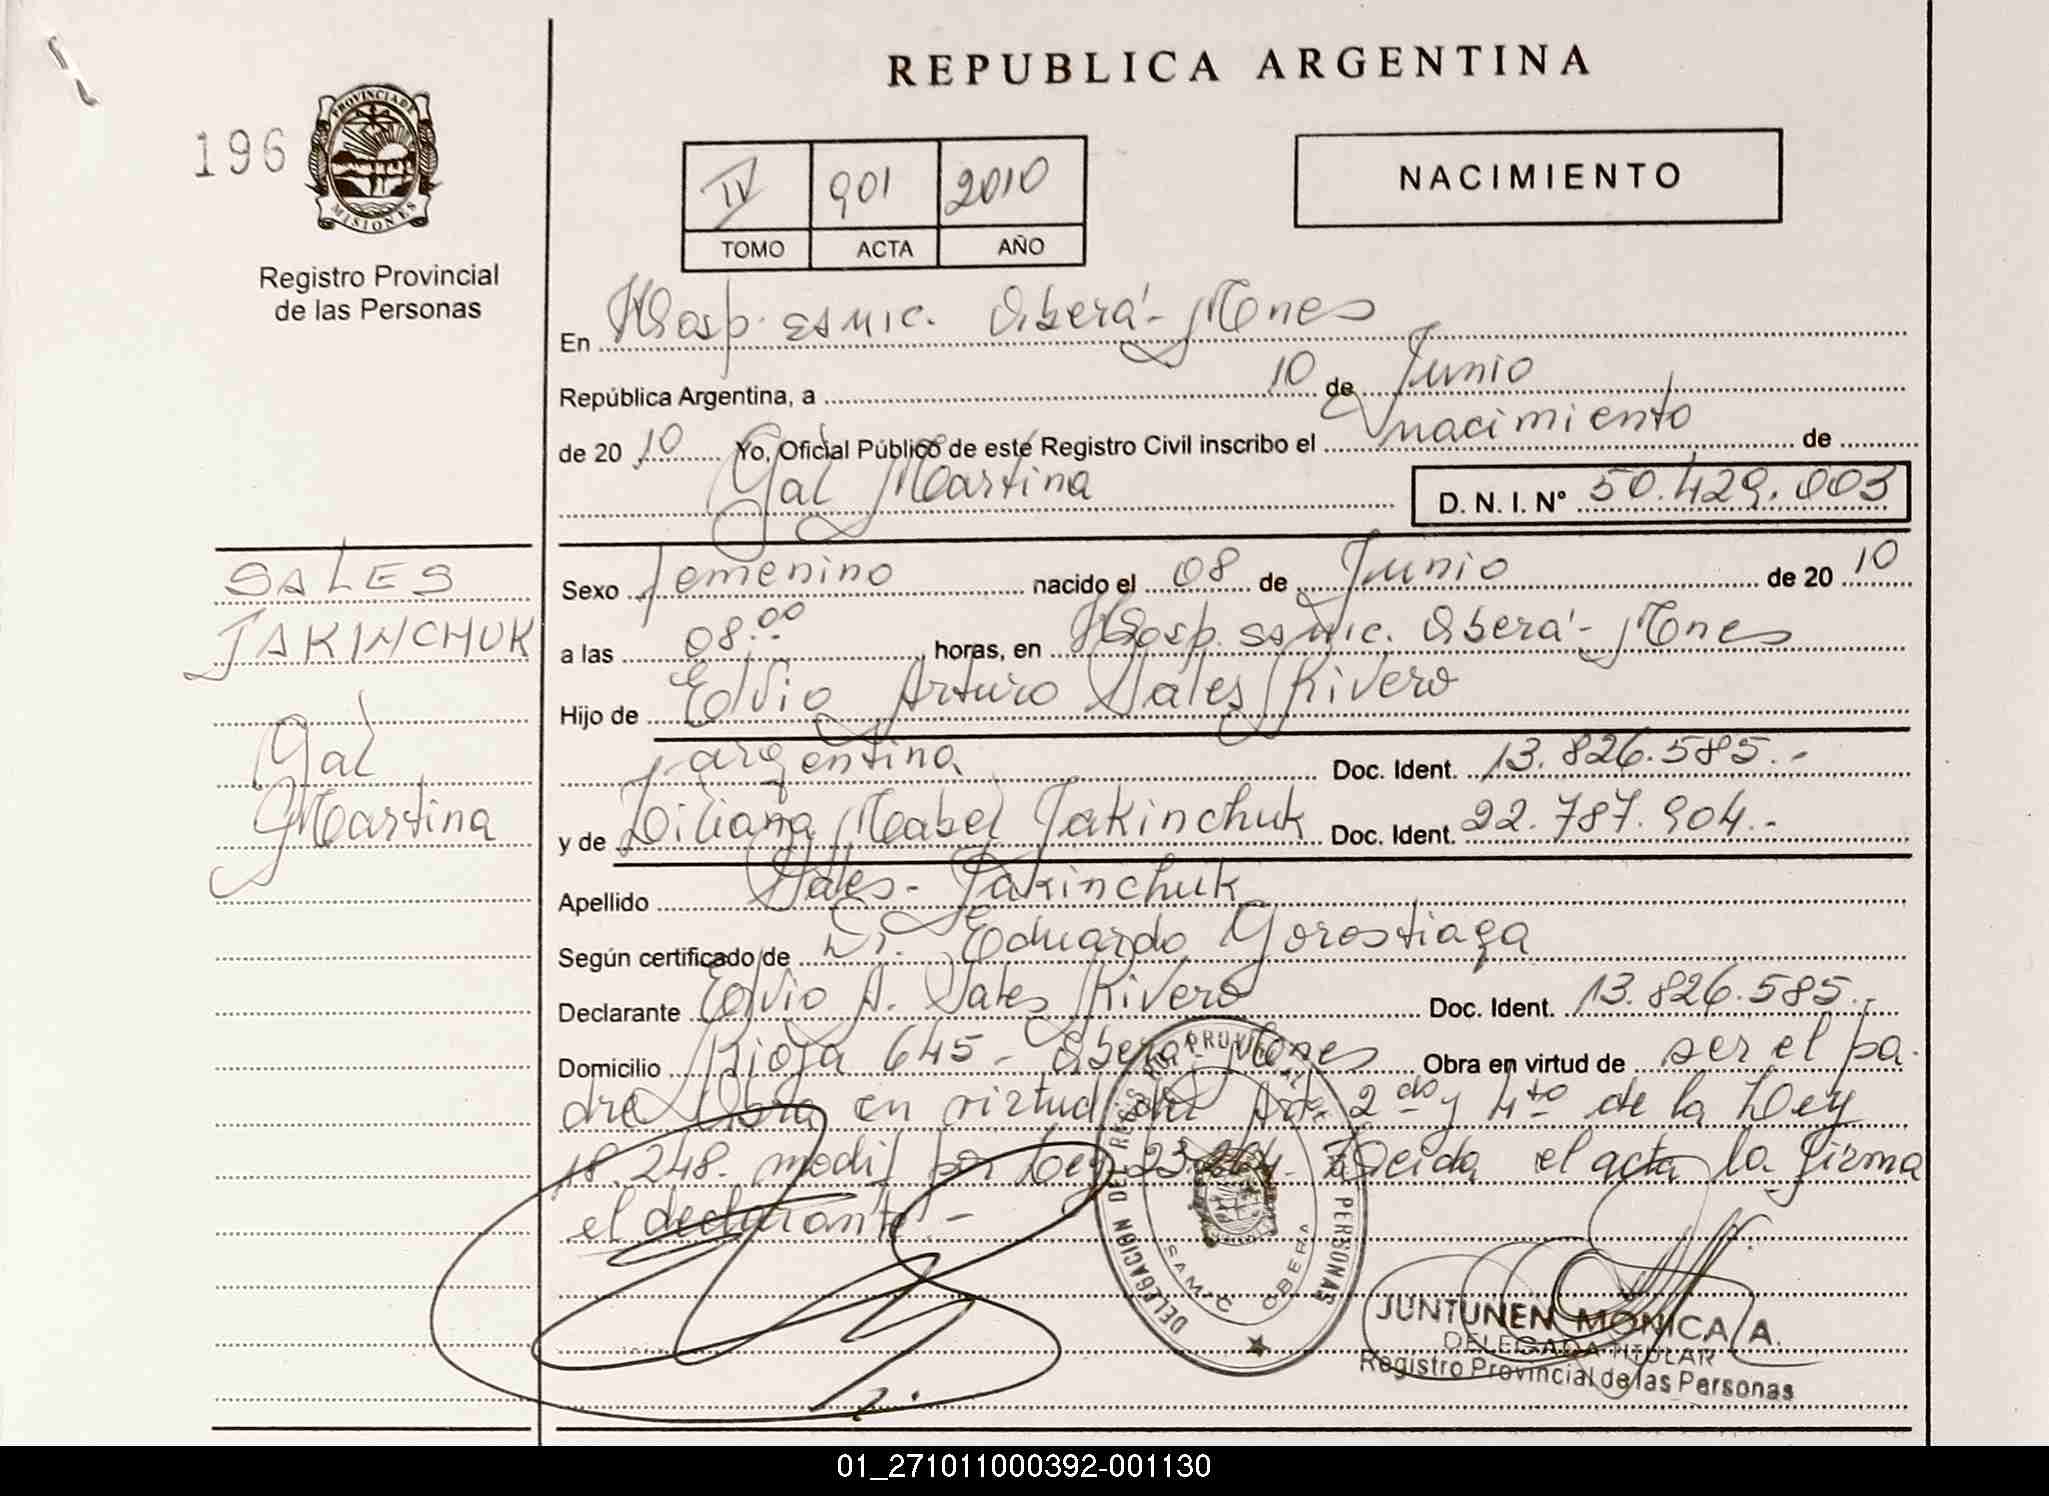 REPUBLICA ARGENTINA
196
PROVINCIA DE
MISIONES
Registro Provincial
de las Personas
IV 901 2010
TOMO ACTA AÑO
NACIMIENTO
En Hosp. SAMIC. Oberá - Mnes
República Argentina, a 10 de Junio
de 20 10 Yo, Oficial Público de este Registro Civil inscribo el nacimiento de
Gal Martina D. N. I. Nº 50.429.003
SALES
JAKINCHUK
Gal
Martina
Sexo femenino nacido el 08 de Junio de 20 10
a las 08.00 horas, en Hosp. SAMIC. Oberá - Mnes
Hijo de Elvio Arturo Sales Rivero
argentina Doc. Ident. 13.826.585.-
y de Liliana Mabel Jakinchuk Doc. Ident. 22.787.904.-
Apellido Sales - Jakinchuk
Según certificado de Dr. Eduardo Gorostiaga
Declarante Elvio A. Sales Rivero Doc. Ident. 13.826.585.-
Domicilio Rioja 645 - Oberá - Mnes Obra en virtud de ser el pa-
dre Obra en virtud del Art. 2do y 4to de la Ley
18.248. modif por Ley 23.264. Leída el acta la firma
el declarante.-
DELEGACION DEL REGISTRO PROVINCIAL DE LAS PERSONAS
SAMIC OBERA
JUNTUNEN MONICA A.
DELEGADA TITULAR
Registro Provincial de las Personas
01_271011000392-001130